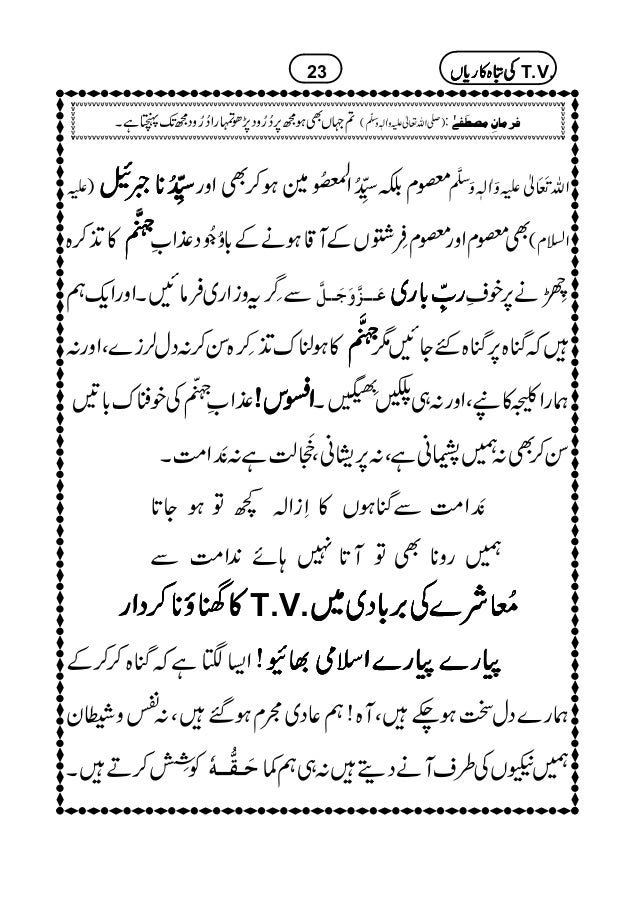 T.V. کی تباہ کاریاں
23
فرمانِ مصطفےٰ :(صلی اللہ تعالیٰ علیہ واٰلہٖ وسلّم) تم جہاں بھی ہو مجھ پر دُرُود پڑھو تمہارا دُرُود مجھ تک پہنچتا ہے۔
اللہ تَعَالیٰ علیہ وَاٰلہٖ وَسَلَّم معصوم بلکہ سیِّدُ المعصُومین ہو کر بھی اور سیِّدُنا جبرئیل (علیہ
السلام) بھی معصوم اور معصوم فِرِشتوں کے آقا ہونے کے باوُجُود عذابِ جہنَّم کا تذکرہ
چِھڑنے پر خوفِ ربِّ باری عَزَّوَجَلَّ سے گِریہ وزاری فرمائیں۔ اور ایک ہم
ہیں کہ گناہ پر گناہ کئے جائیں مگر جہنَّم کا ہولناک تذکِرہ سن کر نہ دل لرزے، اور نہ
ہمارا کلیجہ کانپے، اور نہ ہی پلکیں بِھیگیں۔ افسوس! عذابِ جہنّم کی خوفناک باتیں
سن کر بھی نہ ہمیں پشیمانی ہے، نہ پریشانی، خَجالت ہے نہ نَدامت۔
نَدامت سے گناہوں کا اِزالہ کچھ تو ہو جاتا
ہمیں رونا بھی تو آتا نہیں ہائے ندامت سے
مُعاشرے کی بربادی میں T.V. کا گھناؤنا کردار
پیارے پیارے اسلامی بھائیو! ایسا لگتا ہے کہ گناہ کر کر کے
ہمارے دل سخت ہو چکے ہیں، آہ! ہم عادی مجرم ہو گئے ہیں، نہ نفس و شیطان
ہمیں نیکیوں کی طرف آنے دیتے ہیں نہ ہی ہم کما حَقُّہٗ کوشِش کرتے ہیں۔